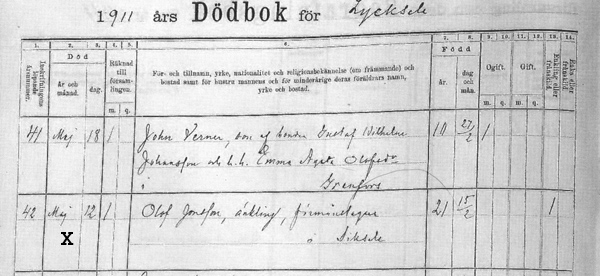 1911 års Dödbok för Lycksele
1. 2. 3. 4. 5. 6. 7. 8. 9. 10. 11. 12. 13. 14.
Inskrifningens löpande årsnummer.
Död
År och månad.
dag.
Räknad till församlingen.
m. q.
För- och tillnamn, yrke, nationalitet och religionsbekännelse (om främmande) och bostad samt för hustru mannens och för minderårige deras föräldrars namn, yrke och bostad.
Född
år.
dag och mån.
Ogift.
m. q.
Gift.
m. q.
Enkling eller frånskild.
Enka eller frånskild.
41 Maj 18 1 John Verner, son af bonden Gustaf Vilhelm 10 27/2 1
Johansson och h. h. Emma Agata Olofsdr
i Granfors
42 Maj 12 1 Olof Jonsson, änkling, förmånstagare 21 15/2 1
X i Siksele